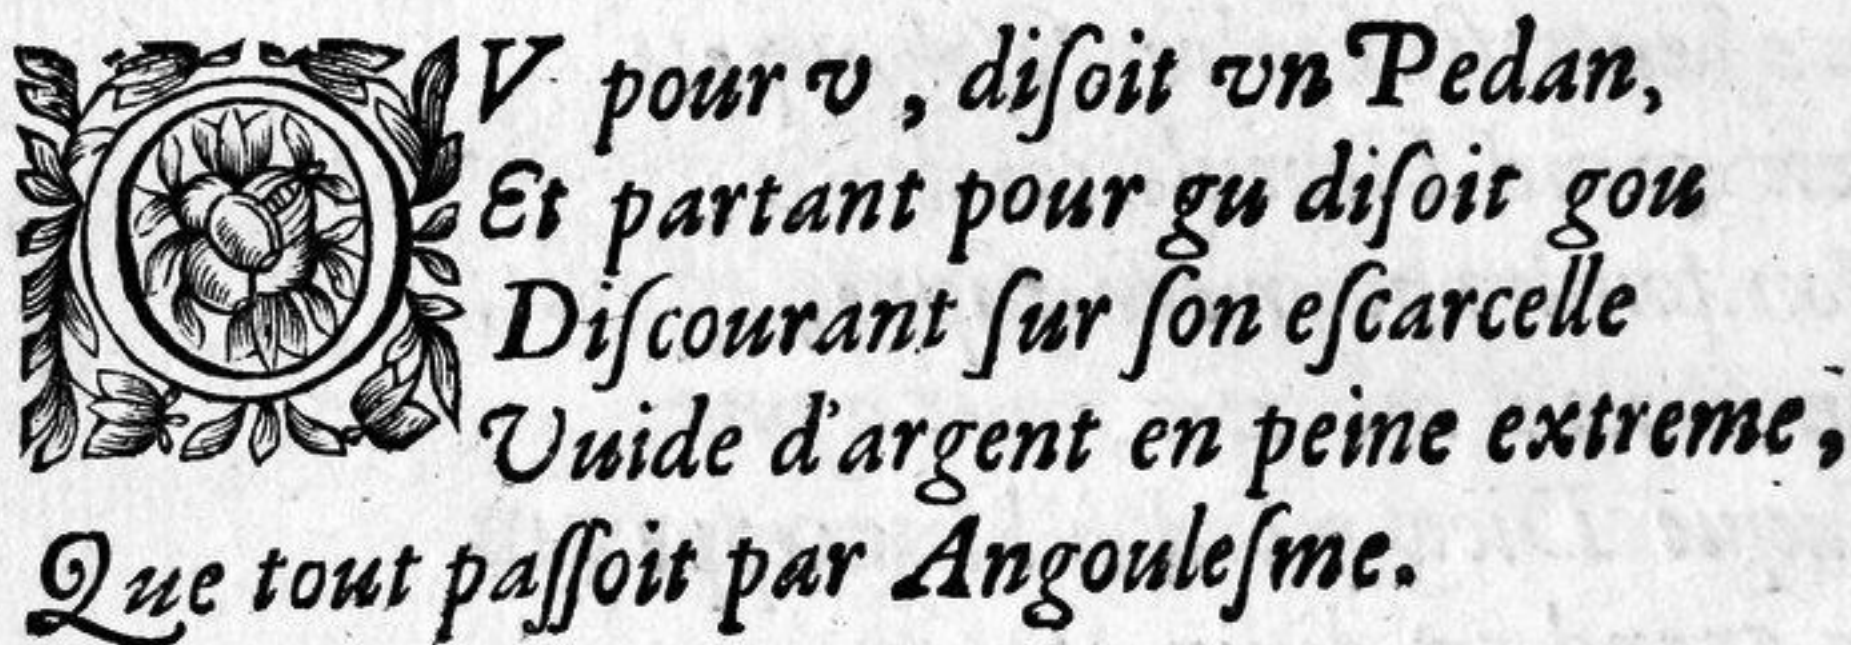 OV pour v, diſoit vn Pedan,
Et partant pour gu diſoit gou
Diſcourant ſur ſon eſcarcelle
Vuide d'argent en peine extreme,
Que tout paſſoit par Angouleſme.